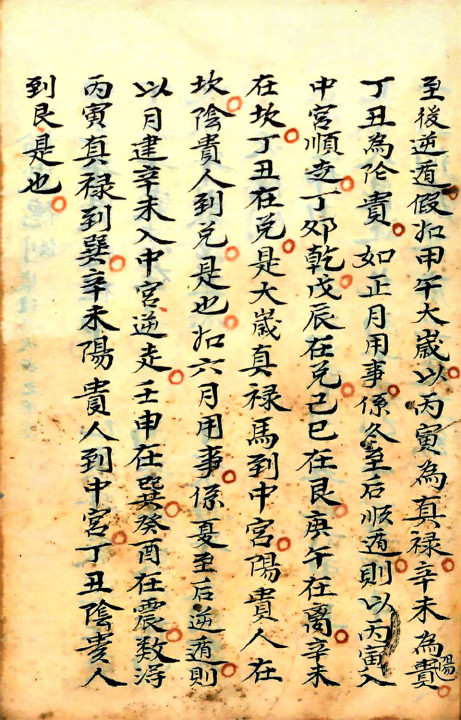 至後逆遁假如甲午大歲以丙寅為真禄辛未為陽貴
丁丑為阴貴如正月用事係冬至后順遁則以丙寅入
中宮順走丁夘乾戊辰在兑己巳在艮庚午在离辛未
在坎丁丑在兑是大歲真禄馬到中宮陽貴人在
坎陰貴人到兑是也如六月用事係夏至后逆遁則
以月建辛未入中宮逆走壬申在巽癸酉在震数得
丙寅真禄到巽辛未陽貴人到中宮丁丑陰貴人
到艮是也